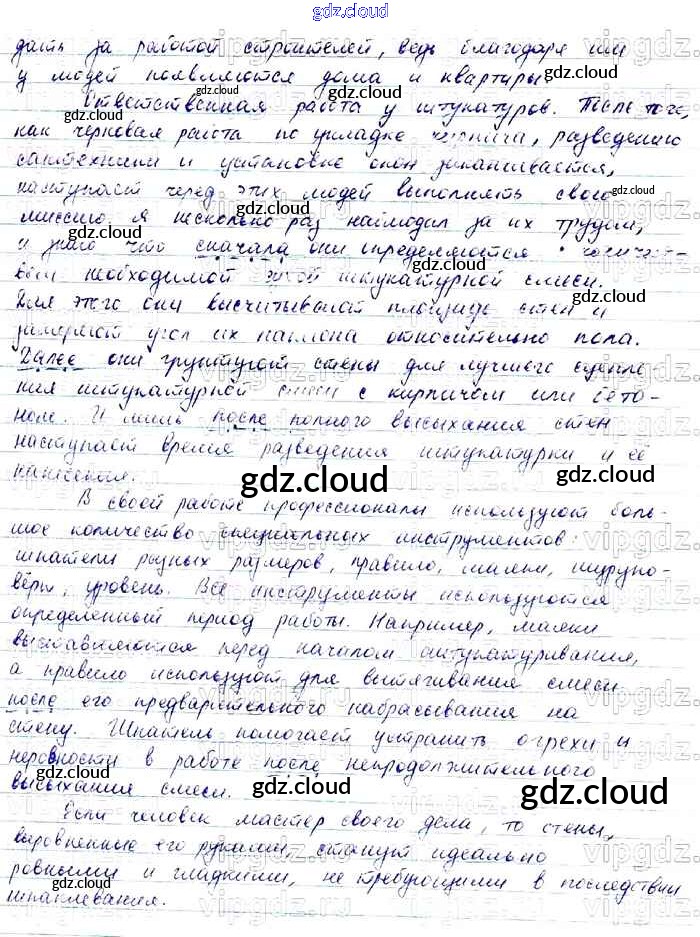 gdz.cloud
дать за работой строителей, ведь благодаря им
у людей появляются дома и квартиры.
Ответственная работа у штукатуров. После того,
как черновая работа по укладке кирпича, разведению
сантехники и установке окон заканчивается,
наступает черед этих людей выполнять свою
миссию. Я несколько раз наблюдал за их трудом,
и знаю что сначала они определяются с количест-
вом необходимой сухой штукатурной смеси.
Для этого они высчитывают площадь стен и
замеряют угол их наклона относительно пола.
Далее они грунтуют стены для лучшего сцепле-
ния штукатурной смеси с кирпичом или бето-
ном. И лишь после полного высыхания стен
наступает время разведения штукатурки и её
нанесения.
В своей работе профессионалы используют боль-
шое количество специальных инструментов:
шпатели разных размеров, правило, маяки, шурупо-
вёрт, уровень. Все инструменты используются
определенный период работы. Например, маяки
выставляются перед началом оштукатуривания,
а правило используют для вытягивания смеси
после его предварительного набрасывания на
стену. Шпатель помогает устранить огрехи и
неровности в работе после непродолжительного
высыхания смеси.
Если человек мастер своего дела, то стены,
выровненные его руками, станут идеально
ровными и гладкими, не требующими в последствии
шпаклевания.